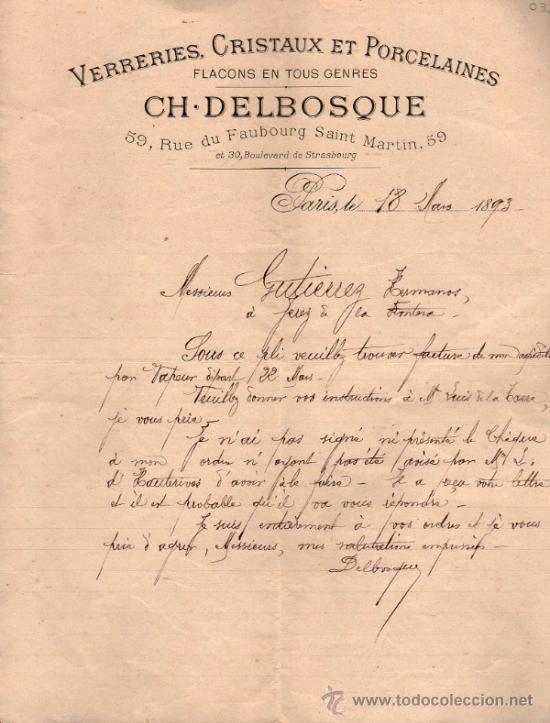 VERRERIES, CRISTAUX ET PORCELAINES
FLACONS EN TOUS GENRES
CH. DELBOSQUE
59, Rue du Faubourg Saint Martin, 59
et 30, Boulevard de Strasbourg
Paris, le 18 Mars 1893
Messieurs Gutierrez Hermanos,
à Jerez de la Frontera
Sous ce pli veuillez trouver facture de mon
par Vapeur départ 22 Mars.
Veuillez donner vos instructions à Mr Luis de la Torre,
je vous prie.
Je n'ai pas signé ni présenté le Chèque
à mon ordre n'ayant pas été avisé par Mr L.
d'Hauterives d'avoir à le faire. Il a reçu votre lettre
et il est probable qu'il va vous répondre.
Je suis entièrement à vos ordres et je vous
prie d'agréer, Messieurs, mes salutations empressées
Delbosque
todocoleccion
www.todocoleccion.net